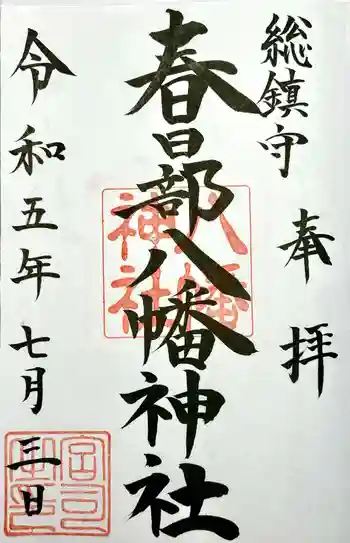 総鎮守
奉拝
春日部八幡神社
八幡
神社
令和五年七月三日